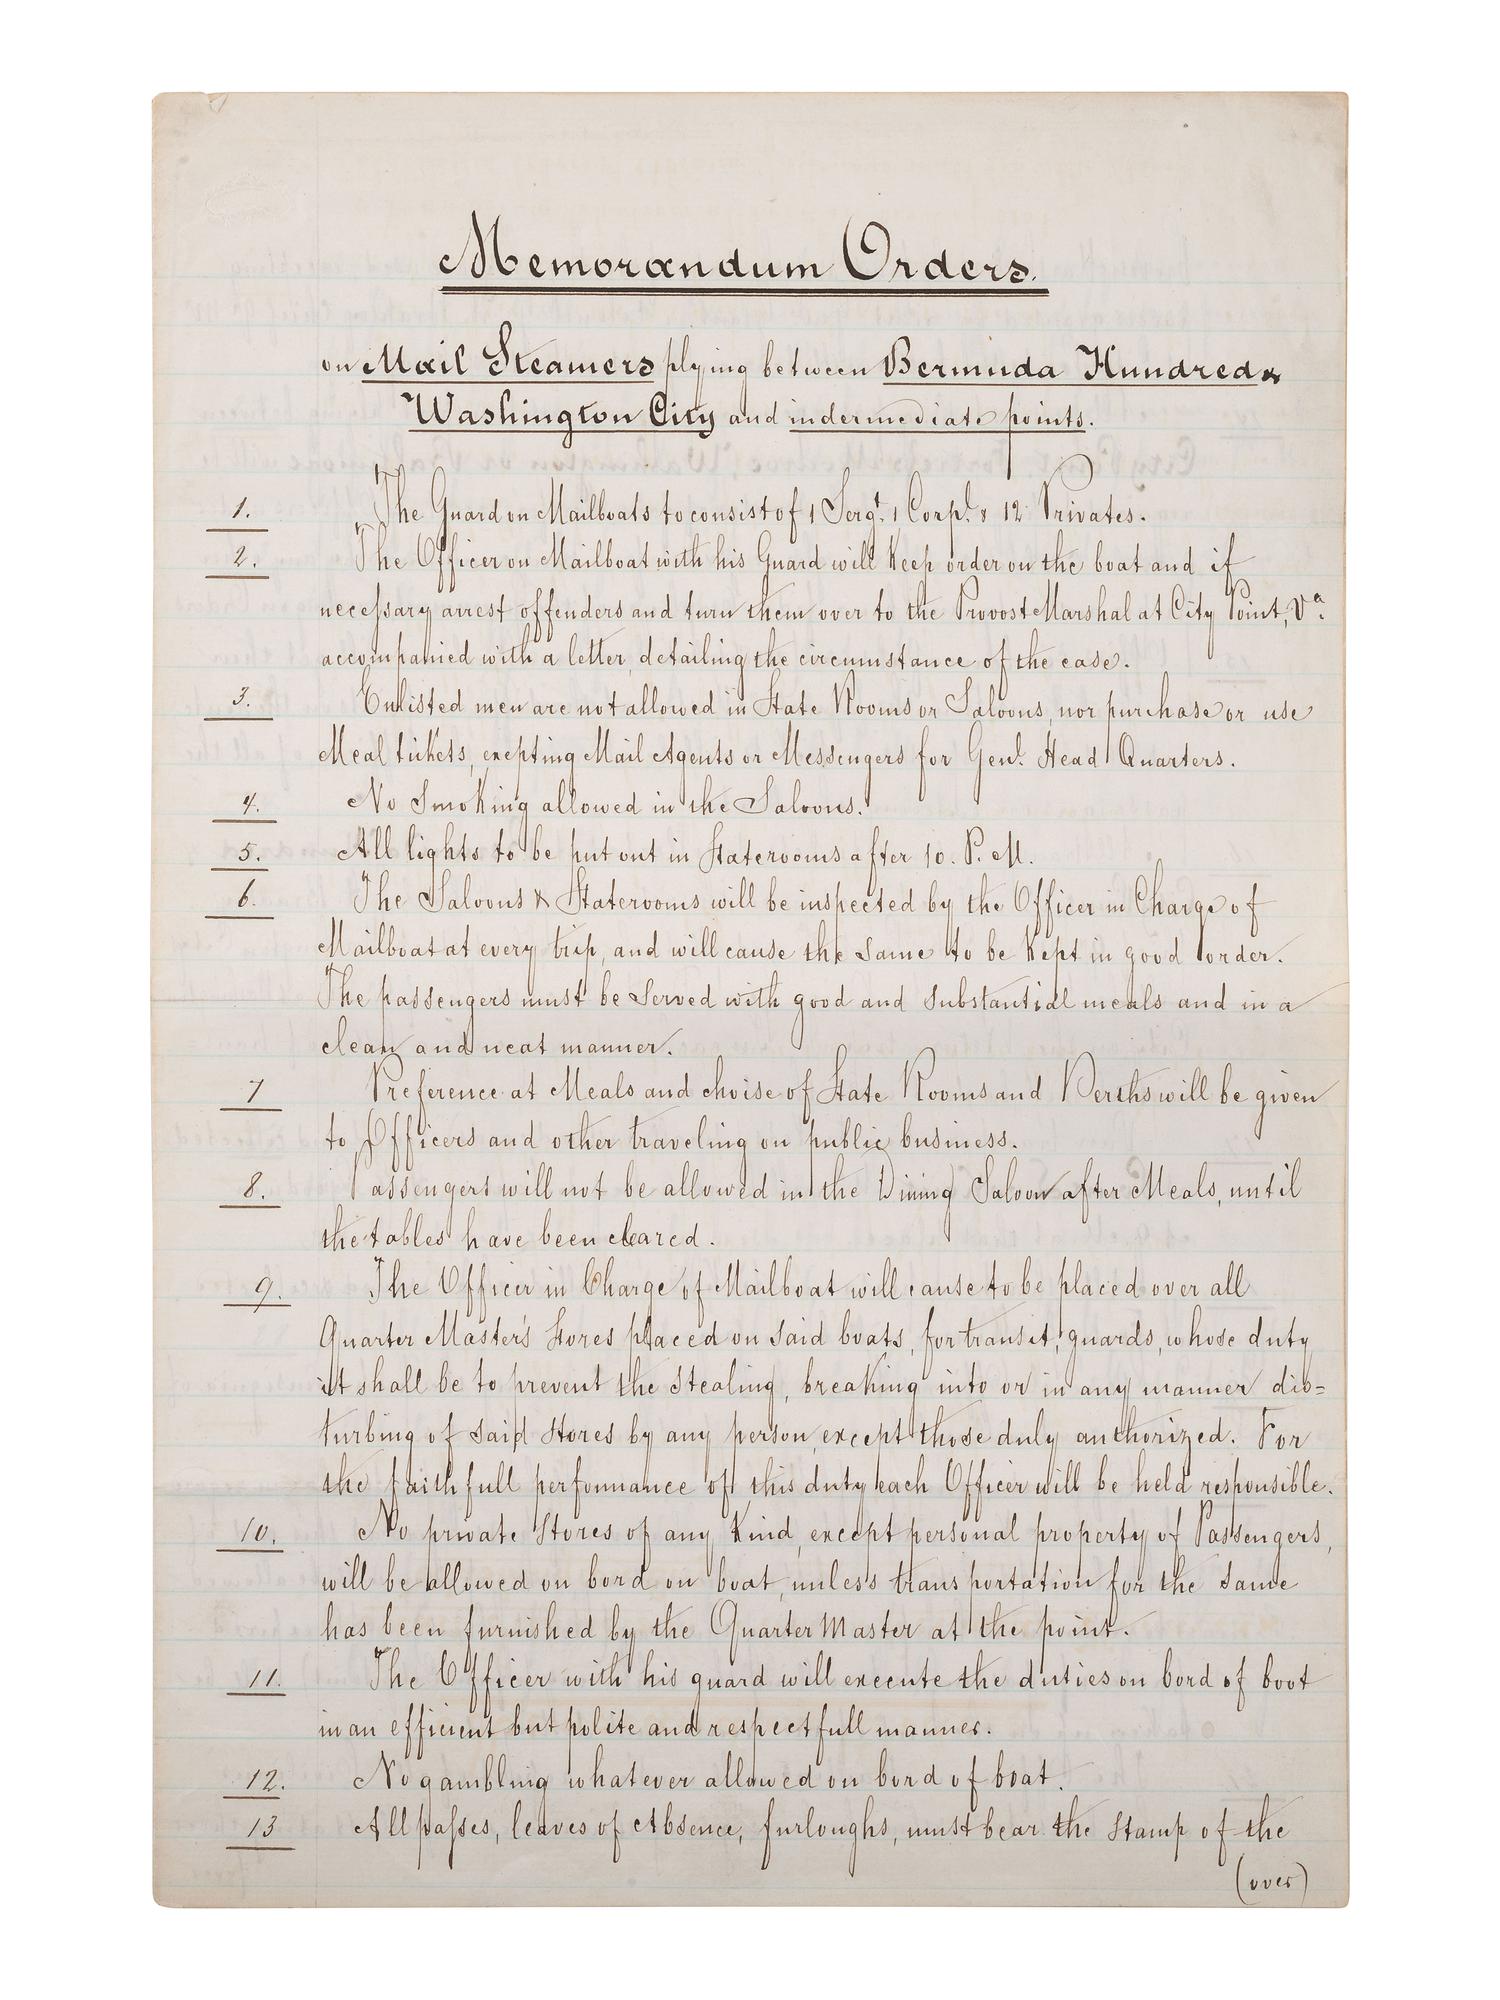 Memorandum Orders.
on Mail Steamers plying between Bermuda Hundred &
Washington City and indermediate points.
1. The Guard on Mailboats to consist of 1 Sergt. 1 Corpl. & 12 Privates.
2. The Officer on Mailboat with his Guard will Keep order on the boat and if
necessary arrest offenders and turn them over to the Provost Marshal at City Point, Va.
accompanied with a letter, detailing the circumstance of the case.
3. Enlisted men are not allowed in State Rooms or Saloons, nor purchase or use
Meal tickets, exepting Mail Agents or Messengers for Genl. Head Quarters.
4. No Smoking allowed in the Saloons.
5. All lights to be put out in Staterooms after 10. P. M.
6. The Saloons & Staterooms will be inspected by the Officer in Charge of
Mailboat at every trip, and will cause the same to be Kept in good order.
The passengers must be served with good and substantial meals and in a
clean and neat manner.
7 Preference at Meals and choise of State Rooms and Berths will be given
to Officers and other traveling on public business.
8. Passengers will not be allowed in the Dining Saloon after Meals, until
the tables have been cleared.
9. The Officer in Charge of Mailboat will cause to be placed over all
Quarter Master's Stores placed on said boats, for transit, guards, whose duty
it shall be to prevent the stealing, breaking into or in any manner dis=
turbing of said Stores by any person, except those duly authorized. For
the faithfull performance of this duty each Officer will be held responsible.
10. No private Stores of any Kind, except personal property of Passengers,
will be allowed on bord on boat, unless transportation for the same
has been furnished by the Quarter Master at the point.
11. The Officer with his guard will execute the duties on bord of boot
in an efficient but polite and respectfull manner.
12. No gambling whatever allowed on bord of boat.
13 All passes, leaves of Absence, furloughs, must bear the Stamp of the
(over)